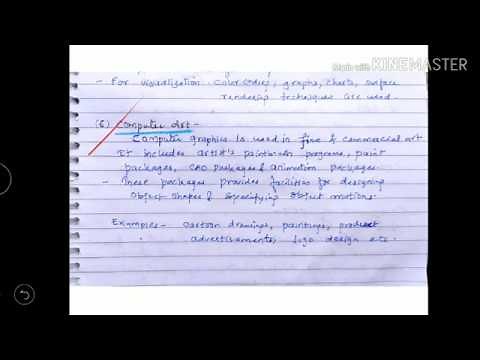 Made with KINEMASTER
- For visualization color codes, graphs, charts, surface
rendering techniques are used.
(6) Computer Art -
Computer graphics is used in fine & commercial art
It includes artist's paintbrush programs, paint
packages, CAD packages & animation packages
- These packages provides facilities for designing
object shapes & specifying object motions.
Examples - Cartoon drawings, paintings, product
advertisements, logo design etc.